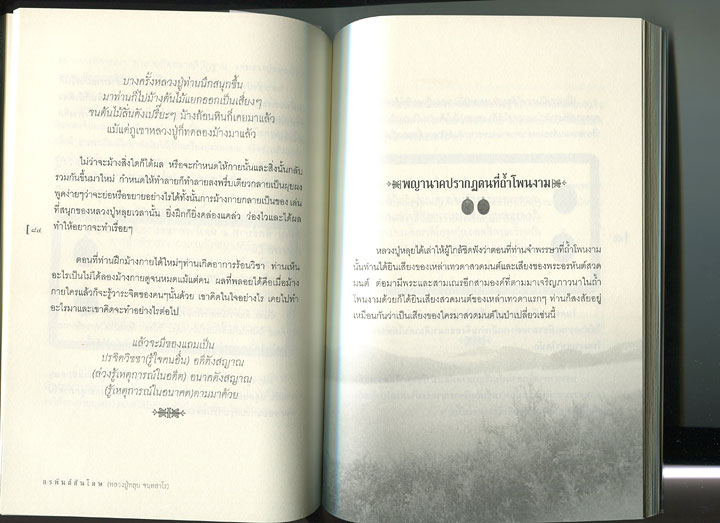 บางครั้งหลวงปู่ท่านนึกสนุกขึ้น
มาท่านก็ไปม้างต้นไม้แยกออกเป็นเสี่ยงๆ
จนต้นไม้ลั่นดังเปรี๊ยะๆ ม้างก้อนหินก็เคยมาแล้ว
แม้แต่ภูเขาหลวงปู่ก็ทดลองม้างมาแล้ว
ไม่ว่าจะม้างสิ่งใดก็ได้ผล หรือจะกำหนดให้กายนั้นและสิ่งนั้นกลับ
รวมกันขึ้นมาใหม่ กำหนดให้ทำลายก็ทำลายลงพรึ่บเดียวกลายเป็นผุยผง
พูดง่ายๆว่าจะย่อหรือขยายอย่างไรได้ทั้งนั้นการม้างกายกลายเป็นของ เล่น
ที่สนุกของหลวงปู่หลุยเวลานั้น ยิ่งฝึกก็ยิ่งคล่องแคล่ว ว่องไวและได้ผล
ทำให้อยากจะทำเรื่อยๆ
ตอนที่ท่านฝึกม้างกายได้ใหม่ๆท่านเกิดอาการร้อนวิชา ท่านเห็น
อะไรเป็นไม่ได้ลองม้างกายดูจนหมดแม้แต่คน ผลที่พลอยได้คือเมื่อม้าง
กายใครแล้วก็จะรู้วาระจิตของคนๆนั้นด้วย เขาคิดในใจอย่างไร เคยไปทำ
อะไรมาและเขาคิดจะทำอย่างไรต่อไป
แล้วจะมีของแถมเป็น
ปรจิตวิชชา(รู้ใจคนอื่น) อดีตังสญาณ
(ล่วงรู้เหตุการณ์ในอดีต) อนาคตังสญาณ
(รู้เหตุการณ์ในอนาคต)ตามมาด้วย
อรหันต์สันโดษ (หลวงปู่หลุย จนฺทสาโร)
พญานาคปรากฏตนที่ถ้ำโพนงาม
หลวงปู่หลุยได้เล่าให้ผู้ใกล้ชิดฟังว่าตอนที่ท่านจำพรรษาที่ถ้ำโพนงาม
นั้นท่านได้ยินเสียงของเหล่าเทวดาสวดมนต์และเสียงของพระอรหันต์สวด
มนต์ ต่อมามีพระและสามเณรอีกสามองค์ที่ตามมาเจริญภาวนาในถ้ำ
โพนงามด้วยก็ได้ยินเสียงสวดมนต์ของเหล่าเทวดาแรกๆ ท่านก็สงสัยอยู่
เหมือนกันว่าเป็นเสียงของใครมาสวดมนต์ในป่าเปลี่ยวเช่นนี้